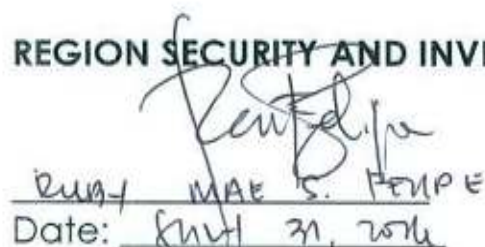 REGION SECURITY AND INVE
RUBY MAE S. FELIPE
Date: 31,